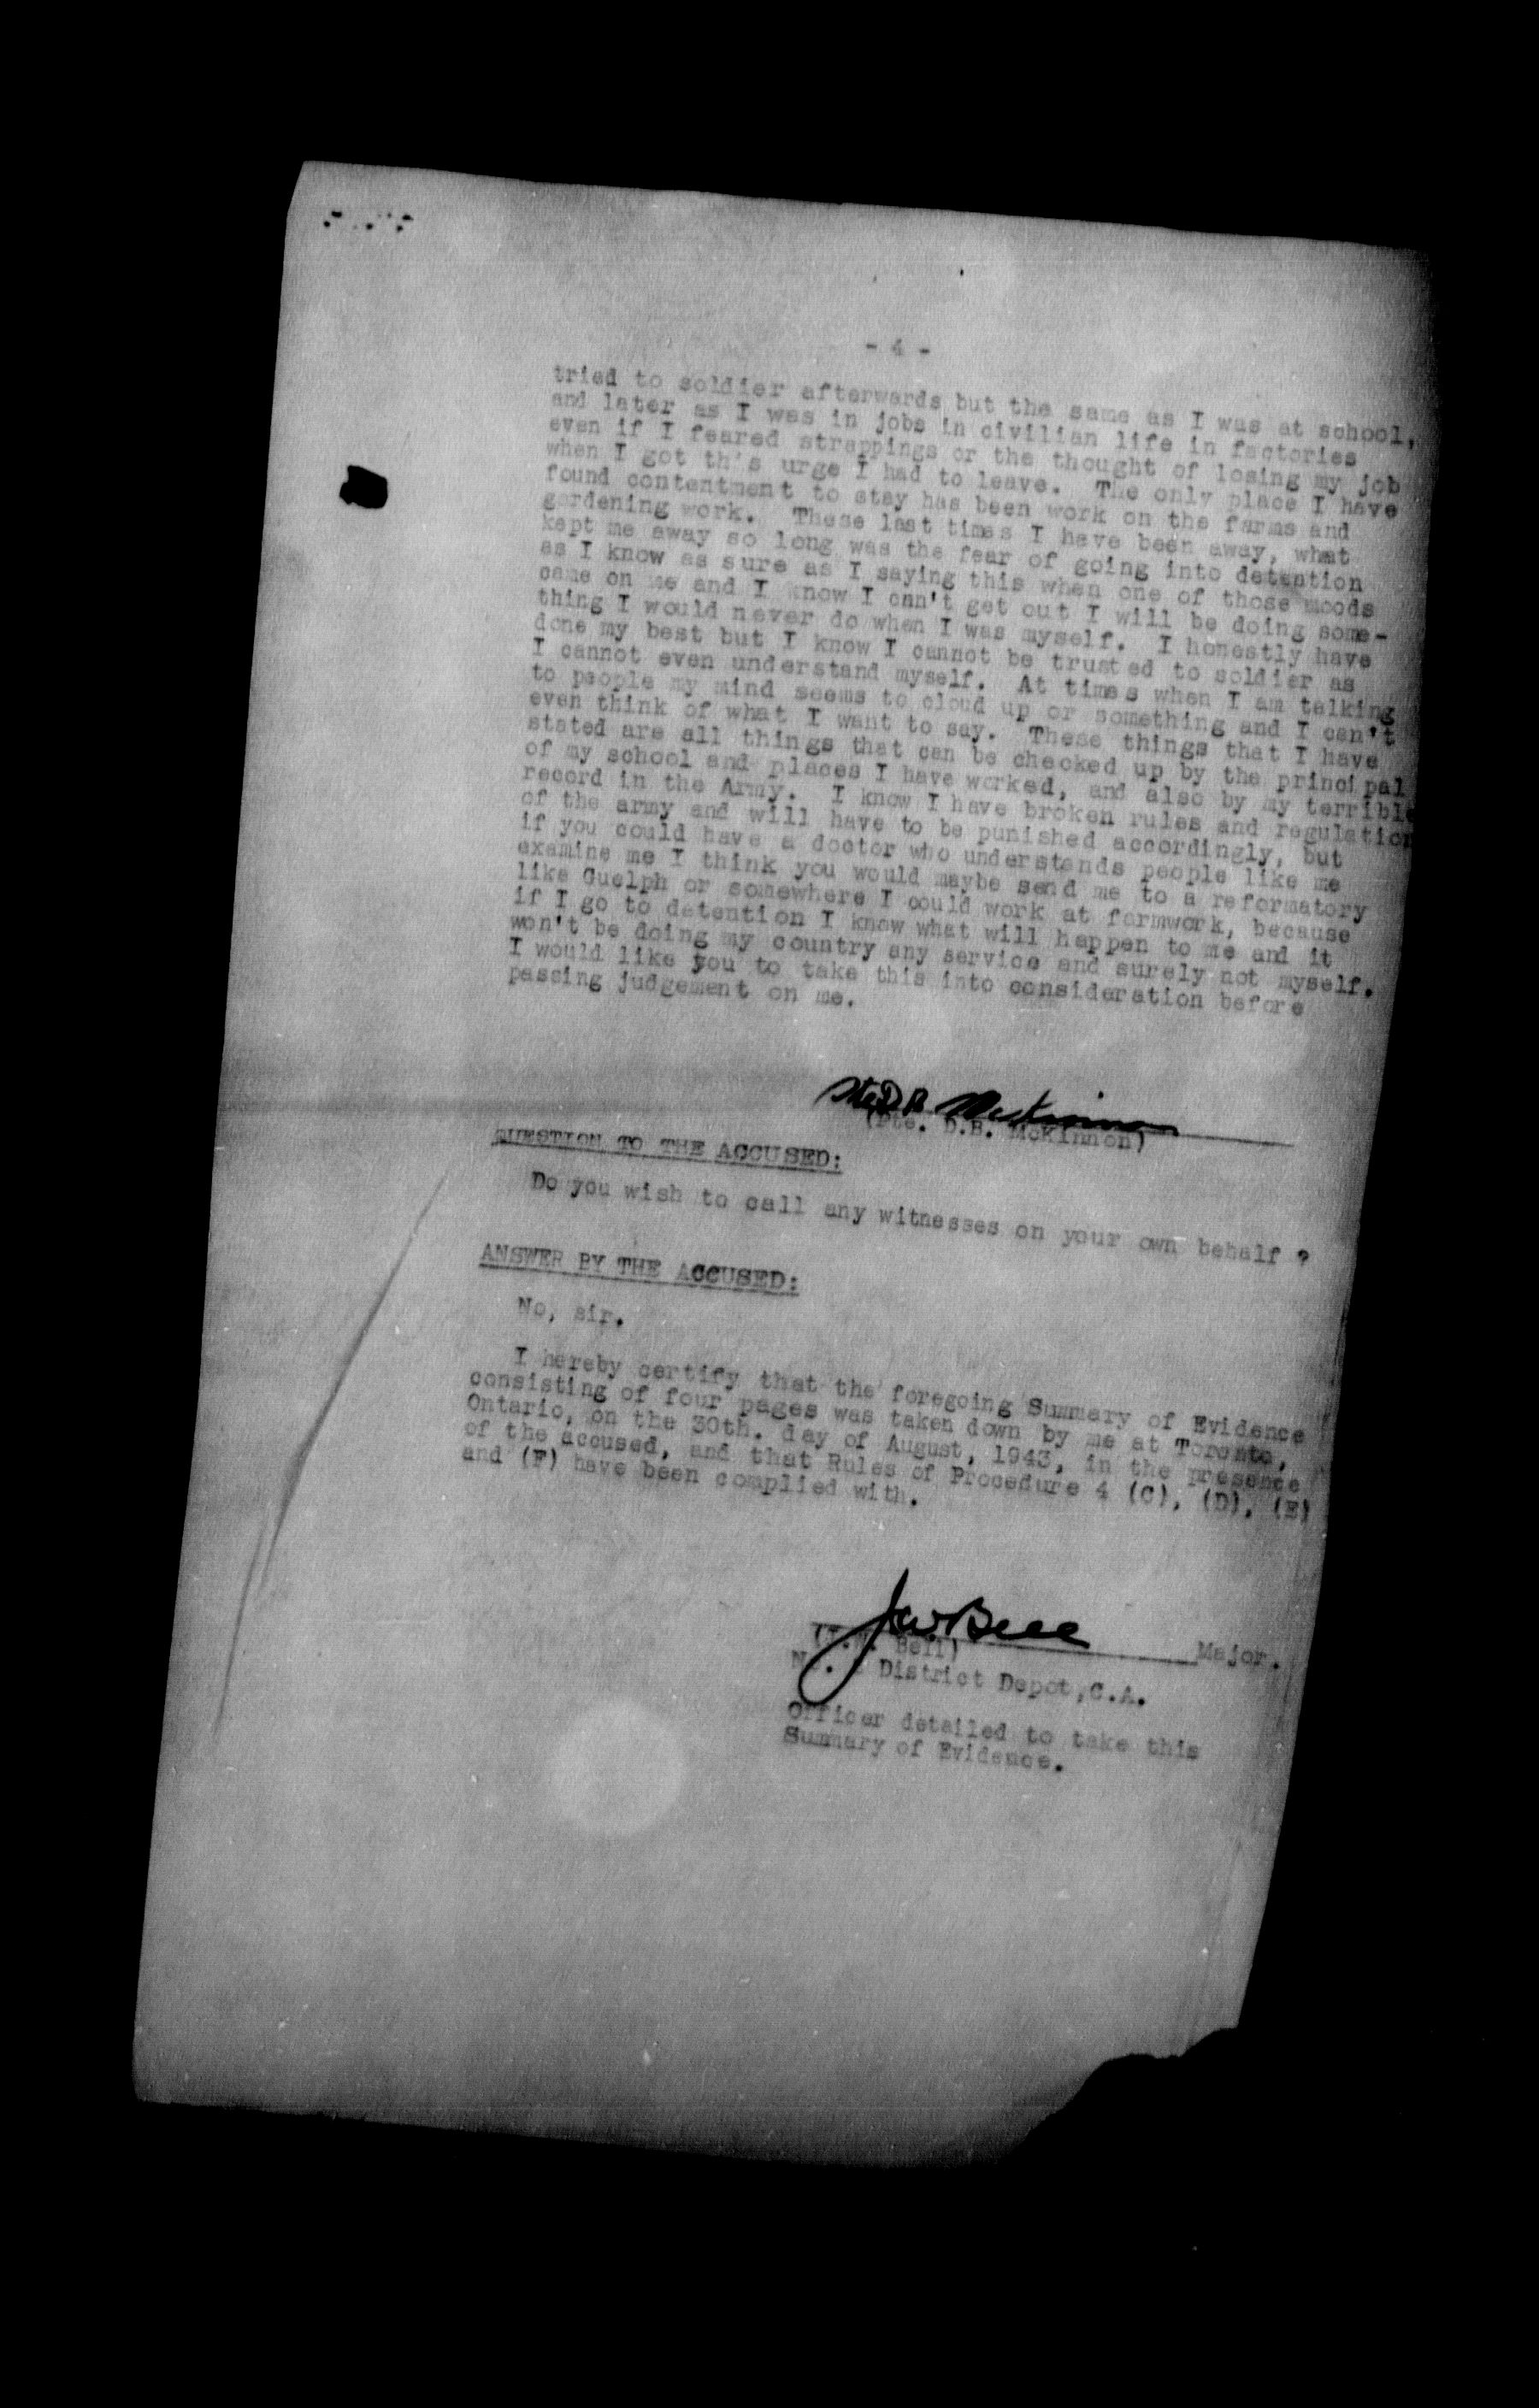 - 4 -
tried to soldier afterwards but the same as I was at school,
and later as I was in jobs in civilian life in factories
even if I feared strappings or the thought of losing my job
when I got th's urge I had to leave. The only place I have
found contentment to stay has been work on the farms and
gardening work. These last times I have been away, what
kept me away so long was the fear of going into detention
as I know as sure as I saying this when one of those moods
came on me and I know I can't get out I will be doing some-
thing I would never do when I was myself. I honestly have
done my best but I know I cannot be trusted to soldier as
I cannot even understand myself. At times when I am talking
to people my mind seems to cloud up or something and I can't
even think of what I want to say. These things that I have
stated are all things that can be checked up by the principal
of my school and places I have worked, and also by my terrible
record in the Army. I know I have broken rules and regulation
of the army and will have to be punished accordingly, but
if you could have a doctor who understands people like me
examine me I think you would maybe send me to a reformatory
like Guelph or somewhere I could work at farmwork, because
if I go to detention I know what will happen to me and it
won't be doing my country any service and surely not myself.
I would like you to take this into consideration before
passing judgement on me.
Pte D B McKinnon
(Pte. D.B. McKinnon)
QUESTION TO THE ACCUSED:
Do you wish to call any witnesses on your own behalf ?
ANSWER BY THE ACCUSED:
No, sir.
I hereby certify that the foregoing Summary of Evidence
consisting of four pages was taken down by me at Toronto,
Ontario, on the 30th. day of August, 1943, in the presence
of the accused, and that Rules of Procedure 4 (C), (D), (E)
and (F) have been complied with.
JWBell Major.
(J.W. Bell)
District Depot,C.A.
Officer detailed to take this
Summary of Evidence.